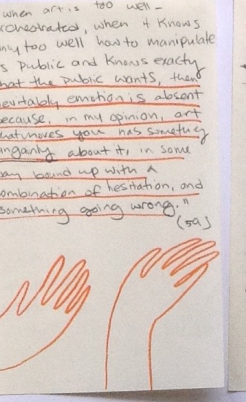 when art is too well-
rchestrated, when it knows
nly too well how to manipulate
s public and knows exactly
hat the public wants, then
nevitably emotion is absent
ecause, in my opinion, art
hat moves you has something
ungainly about it, in some
ay bound up with a
ombination of hesitation, and
something going wrong."
(59)